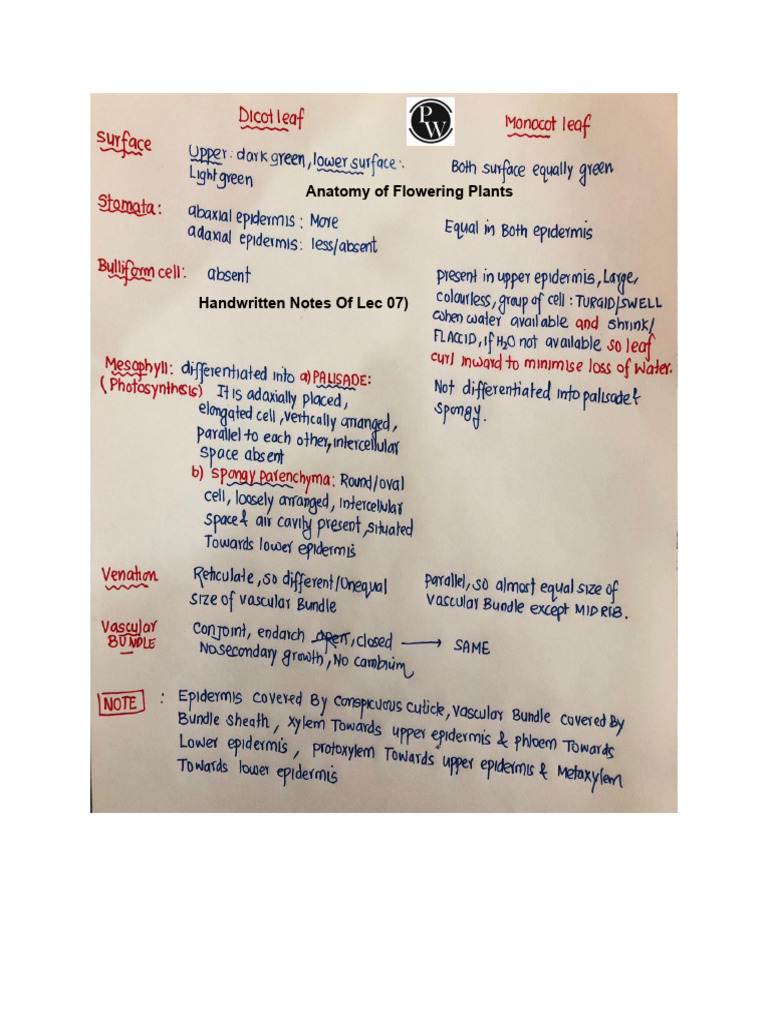 Dicot leaf
PW
Monocot leaf
Surface
Upper: dark green, lower surface:
Light green
Both surface equally green
Anatomy of Flowering Plants
Stomata:
abaxial epidermis: More
adaxial epidermis: less/absent
Equal in Both epidermis
Bulliform cell: absent
Present in upper epidermis, Large,
colourless, group of cell: TURGID/SWELL
when water available and shrink/
FLACCID, if H2O not available so leaf
curl inward to minimise loss of water.
Handwritten Notes Of Lec 07)
Mesophyll: differentiated into a) PALISADE:
(Photosynthesis) It is adaxially placed,
elongated cell, vertically arranged,
parallel to each other, intercellular
space absent
b) Spongy parenchyma: Round/oval
cell, loosely arranged, intercellular
space & air cavity present, situated
Towards lower epidermis
Not differentiated into palisade &
spongy.
Venation
Reticulate, so different/Unequal
size of vascular Bundle
Parallel, so almost equal size of
Vascular Bundle except MIDRIB.
Vascular
BUNDLE
Conjoint, endarch open, closed → SAME
No secondary growth, No cambium
NOTE : Epidermis covered By conspicuous cuticle, Vascular Bundle covered By
Bundle sheath, Xylem Towards upper epidermis & phloem Towards
Lower epidermis, protoxylem Towards upper epidermis & Metaxylem
Towards lower epidermis